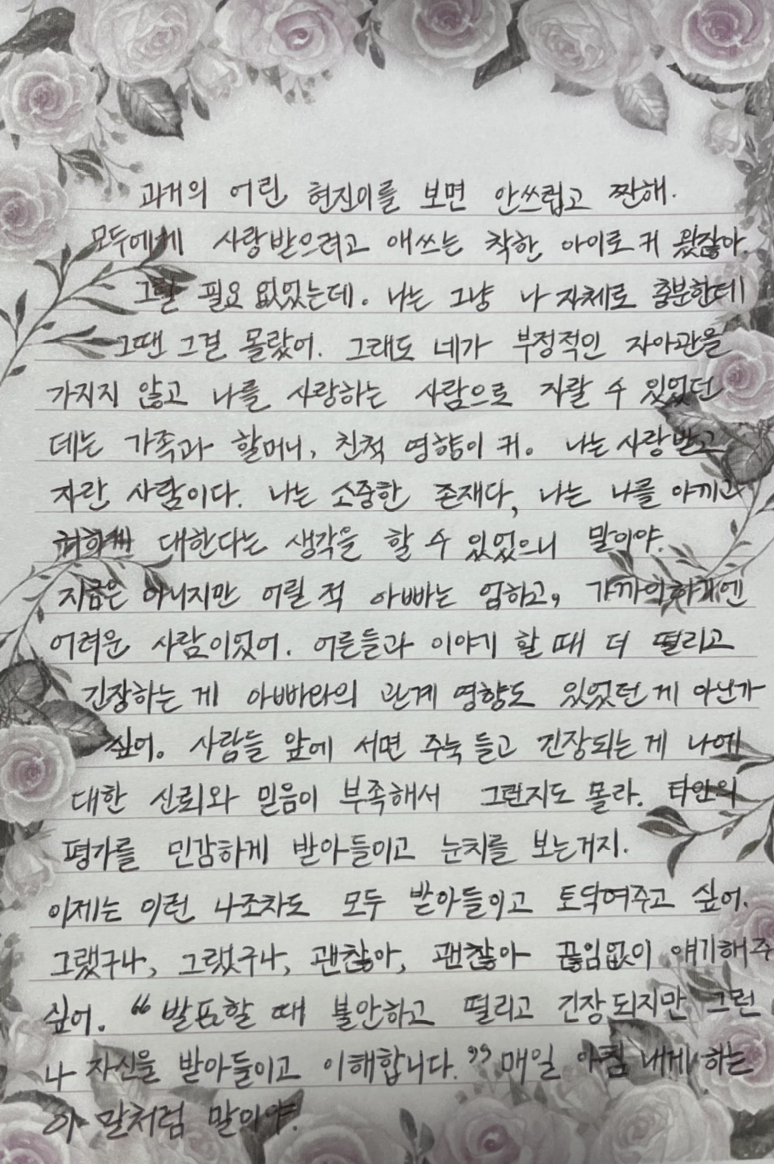 과거의 어린 현진이를 보면 안쓰럽고 짠해.
모두에게 사랑받으려고 애쓰는 착한 아이로 커 왔잖아.
그럴 필요 없었는데. 나는 그냥 나 자체로 충분한데
그땐 그걸 몰랐어. 그래도 네가 부정적인 자아관을
가지지 않고 나를 사랑하는 사람으로 자랄 수 있었던
데는 가족과 할머니, 친척 영향이 커. 나는 사랑받고
자란 사람이다. 나는 소중한 존재다, 나는 나를 아끼고
대한다는 생각을 할 수 있었으니 말이야.
지금은 아니지만 어릴 적 아빠는 엄하고, 가까워지기엔
어려운 사람이었어. 어른들과 이야기 할 때 더 떨리고
긴장하는 게 아빠와의 관계 영향도 있었던 게 아닌가
싶어. 사람들 앞에 서면 주눅 들고 긴장되는 게 나에
대한 신뢰와 믿음이 부족해서 그런지도 몰라. 타인의
평가를 민감하게 받아들이고 눈치를 보는거지.
이제는 이런 나조차도 모두 받아들이고 토닥여주고 싶어.
그랬구나, 그랬구나, 괜찮아, 괜찮아 끊임없이 얘기해주
싶어. “발표할 때 불안하고 떨리고 긴장되지만 그런
나 자신을 받아들이고 이해합니다.” 매일 아침 내게 하는
이 말처럼 말이야.